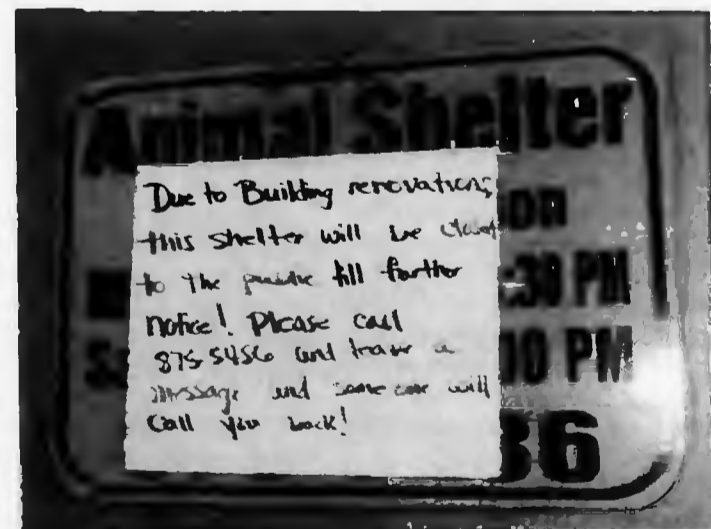 Animal Shelter
Due to Building renovations
this shelter will be closed
to the public till farther
notice! Please call
875-5456 and leave a
message and some one will
Call you back!
:30 PM
00 PM
36